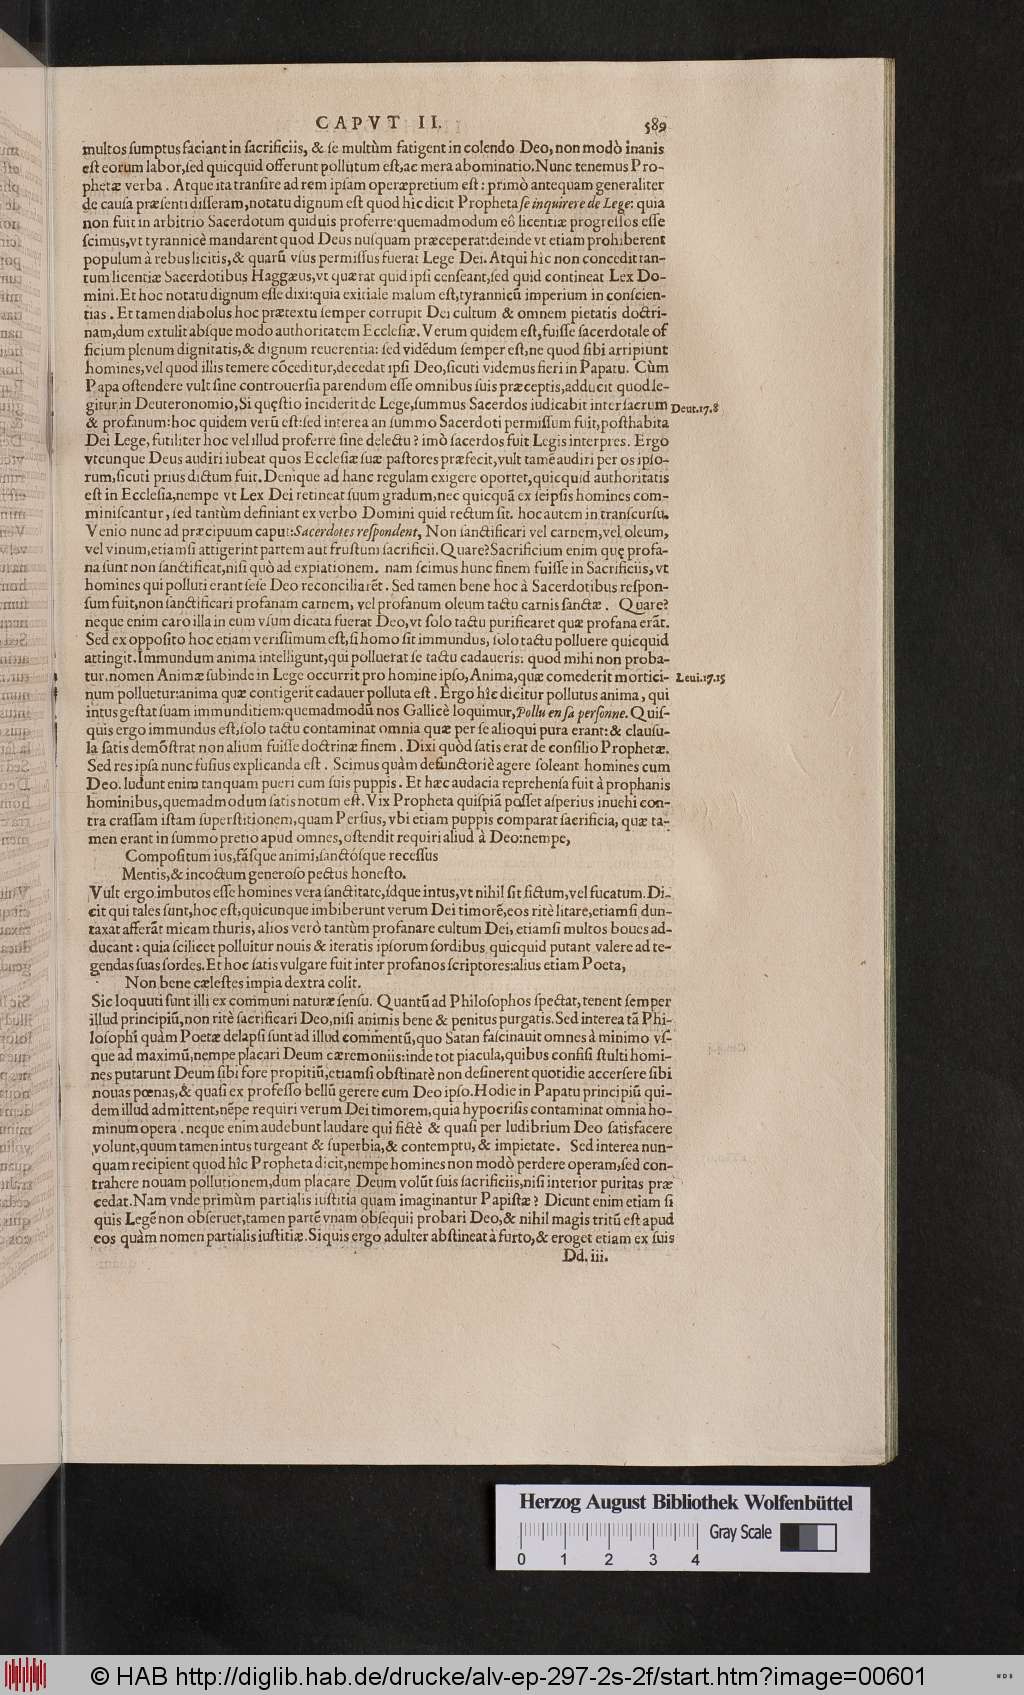 CAPVT II. 589
multos ſumptus faciant in ſacrificiis, & ſe multùm fatigent in colendo Deo, non modò inanis
eſt eorum labor, ſed quicquid offerunt pollutum eſt, ac mera abominatio. Nunc tenemus Pro-
phetæ verba. Atque ita tranſire ad rem ipſam operæpretium eſt: primò antequam generaliter
de cauſa præſenti diſſeram, notatu dignum eſt quod hîc dicit Propheta ſe inquirere de Lege: quia
non fuit in arbitrio Sacerdotum quiduis proferre: quemadmodum eô licentiæ progreſſos eſſe
ſcimus, vt tyrannicè mandarent quod Deus nuſquam præceperat: deinde vt etiam prohiberent
populum à rebus licitis, & quarũ vſus permiſſus fuerat Lege Dei. Atqui hic non concedit tan-
tum licentiæ Sacerdotibus Haggæus, vt quærat quid ipſi cenſeant, ſed quid contineat Lex Do-
mini. Et hoc notatu dignum eſſe dixi: quia exitiale malum eſt, tyrannicũ imperium in conſcien-
tias. Et tamen diabolus hoc prætextu ſemper corrupit Dei cultum & omnem pietatis doctri-
nam, dum extulit abſque modo authoritatem Eccleſiæ. Verum quidem eſt, fuiſſe ſacerdotale of
ficium plenum dignitatis, & dignum reuerentia: ſed vidẽdum ſemper eſt, ne quod ſibi arripiunt
homines, vel quod illis temere cõceditur, decedat ipſi Deo, ſicuti videmus fieri in Papatu. Cùm
Papa oſtendere vult ſine controuerſia parendum eſſe omnibus ſuis præceptis, adducit quod le-
gitur in Deuteronomio, Si quęſtio inciderit de Lege, ſummus Sacerdos iudicabit inter ſacrum Deut.17.8
& profanum: hoc quidem verũ eſt: ſed interea an ſummo Sacerdoti permiſſum fuit, poſthabita
Dei Lege, futiliter hoc vel illud proferre ſine delectu? imò ſacerdos fuit Legis interpres. Ergo
vtcunque Deus audiri iubeat quos Eccleſiæ ſuæ paſtores præfecit, vult tamẽ audiri per os ipſo-
rum, ſicuti prius dictum fuit. Denique ad hanc regulam exigere oportet, quicquid authoritatis
eſt in Eccleſia, nempe vt Lex Dei retineat ſuum gradum, nec quicquã ex ſeipſis homines com-
miniſcantur, ſed tantùm definiant ex verbo Domini quid rectum ſit. hoc autem in tranſcurſu.
Venio nunc ad præcipuum caput: Sacerdotes reſpondent, Non ſanctificari vel carnem, vel oleum,
vel vinum, etiamſi attigerint partem aut fruſtum ſacrificii. Quare? Sacrificium enim quę profa-
na ſunt non ſanctificat, niſi quò ad expiationem. nam ſcimus hunc finem fuiſſe in Sacrificiis, vt
homines qui polluti erant ſeſe Deo reconciliarẽt. Sed tamen bene hoc à Sacerdotibus reſpon-
ſum fuit, non ſanctificari profanam carnem, vel profanum oleum tactu carnis ſanctæ. Quare?
neque enim caro illa in eum vſum dicata fuerat Deo, vt ſolo tactu purificaret quæ profana erãt.
Sed ex oppoſito hoc etiam veriſſimum eſt, ſi homo ſit immundus, ſolo tactu polluere quicquid
attingit. Immundum anima intelligunt, qui polluerat ſe tactu cadaueris: quod mihi non proba-
tur. nomen Animæ ſubinde in Lege occurrit pro homine ipſo, Anima, quæ comederit mortici- Leui.17.15
num polluetur: anima quæ contigerit cadauer polluta eſt. Ergo hîc dicitur pollutus anima, qui
intus geſtat ſuam immunditiem: quemadmodũ nos Gallicè loquimur, Pollu en ſa perſonne. Quiſ-
quis ergo immundus eſt, ſolo tactu contaminat omnia quæ per ſe alioqui pura erant: & clauſu-
la ſatis demõſtrat non alium fuiſſe doctrinæ finem. Dixi quòd ſatis erat de conſilio Prophetæ.
Sed res ipſa nunc fuſius explicanda eſt. Scimus quàm defunctoriè agere ſoleant homines cum
Deo. ludunt enim tanquam pueri cum ſuis puppis. Et hæc audacia reprehenſa fuit à prophanis
hominibus, quemadmodum ſatis notum eſt. Vix Propheta quiſpiã poſſet aſperius inuehi con-
tra craſſam iſtam ſuperſtitionem, quam Perſius, vbi etiam puppis comparat ſacrificia, quæ ta-
men erant in ſummo pretio apud omnes, oſtendit requiri aliud à Deo: nempe,
Compoſitum ius, fáſque animi, ſanctóſque receſſus
Mentis, & incoctum generoſo pectus honeſto.
Vult ergo imbutos eſſe homines vera ſanctitate, idque intus, vt nihil ſit fictum, vel fucatum. Di-
cit qui tales ſunt, hoc eſt, quicunque imbiberunt verum Dei timorẽ, eos ritè litare, etiamſi dun-
taxat afferãt micam thuris, alios verò tantùm profanare cultum Dei, etiamſi multos boues ad-
ducant: quia ſcilicet polluitur nouis & iteratis ipſorum ſordibus quicquid putant valere ad te-
gendas ſuas ſordes. Et hoc ſatis vulgare fuit inter profanos ſcriptores: alius etiam Poeta,
Non bene cæleſtes impia dextra colit.
Sic loquuti ſunt illi ex communi naturæ ſenſu. Quantũ ad Philoſophos ſpectat, tenent ſemper
illud principiũ, non ritè ſacrificari Deo, niſi animis bene & penitus purgatis. Sed interea tã Phi-
loſophi quàm Poetæ delapſi ſunt ad illud commentũ, quo Satan faſcinauit omnes à minimo vſ-
que ad maximũ, nempe placari Deum cæremoniis: inde tot piacula, quibus confiſi ſtulti homi-
nes putarunt Deum ſibi fore propitiũ, etiamſi obſtinatè non deſinerent quotidie accerſere ſibi
nouas pœnas, & quaſi ex profeſſo bellũ gerere cum Deo ipſo. Hodie in Papatu principiũ qui-
dem illud admittent, nẽpe requiri verum Dei timorem, quia hypocriſis contaminat omnia ho-
minum opera. neque enim audebunt laudare qui fictè & quaſi per ludibrium Deo ſatisfacere
volunt, quum tamen intus turgeant & ſuperbia, & contemptu, & impietate. Sed interea nun-
quam recipient quod hîc Propheta dicit, nempe homines non modò perdere operam, ſed con-
trahere nouam pollutionem, dum placare Deum volũt ſuis ſacrificiis, niſi interior puritas præ
cedat. Nam vnde primùm partialis iuſtitia quam imaginantur Papiſtæ? Dicunt enim etiam ſi
quis Legẽ non obſeruet, tamen partẽ vnam obſequii probari Deo, & nihil magis tritũ eſt apud
eos quàm nomen partialis iuſtitiæ. Si quis ergo adulter abſtineat à furto, & eroget etiam ex ſuis
Dd. iii.
Herzog August Bibliothek Wolfenbüttel
Gray Scale
0 1 2 3 4
© HAB http://diglib.hab.de/drucke/alv-ep-297-2s-2f/start.htm?image=00601
WDB